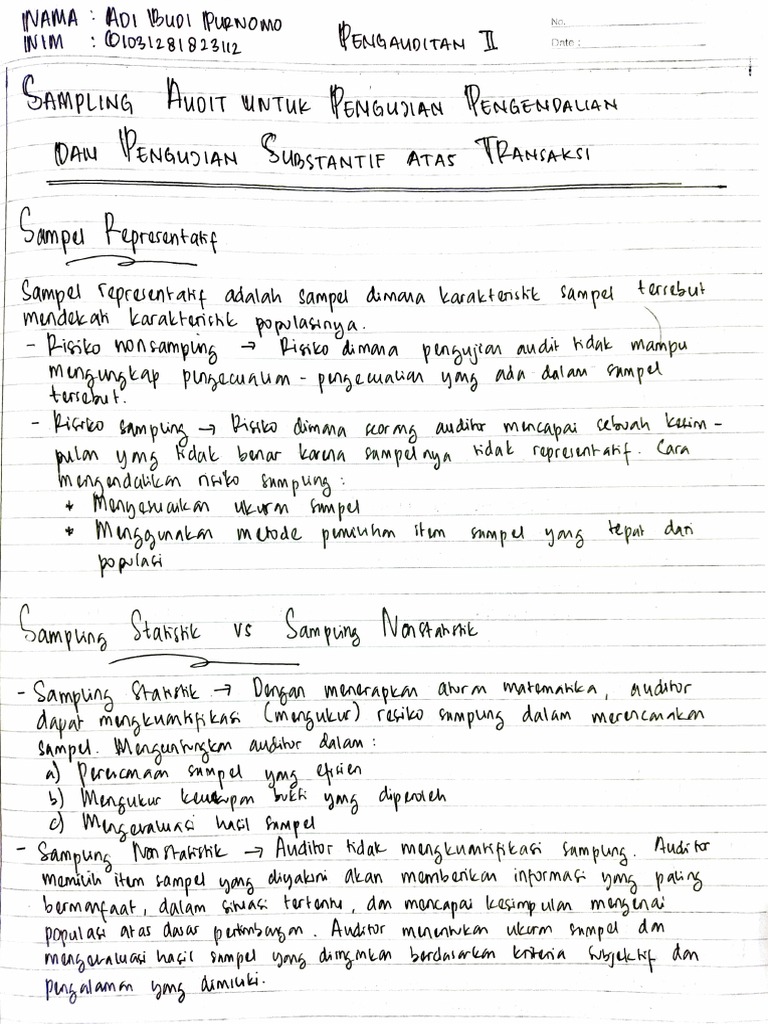 NAMA : ADI BUDI PURNOMO
NIM : 01031281823112
PENGAUDITAN II
No.
Date :
SAMPLING AUDIT UNTUK PENGUJIAN PENGENDALIAN
DAN PENGUJIAN SUBSTANTIF ATAS TRANSAKSI
Sampel Representatif
Sampel representatif adalah sampel dimana karakteristik sampel tersebut
mendekati karakteristik populasinya.
- Risiko nonsampling → Risiko dimana pengujian audit tidak mampu
mengungkap pengecualian - pengecualian yang ada dalam sampel
tersebut.
- Risiko sampling → Risiko dimana seorang auditor mencapai sebuah kesim -
pulan yang tidak benar karena sampelnya tidak representatif. Cara
mengendalikan risiko sampling :
* Menyesuaikan ukuran sampel
* Menggunakan metode pemilihan item sampel yang tepat dari
populasi
Sampling Statistik vs Sampling Nonstatistik
- Sampling Statistik → Dengan menerapkan aturan matematika, auditor
dapat mengkuantifikasi (mengukur) resiko sampling dalam merencanakan
sampel. Menguntungkan auditor dalam :
a) Perencanaan sampel yang efisien
b) Mengukur kecukupan bukti yang diperoleh
c) Mengevaluasi hasil sampel
- Sampling Nonstatistik → Auditor tidak mengkuantifikasi sampling. Auditor
memilih item sampel yang diyakini akan memberikan informasi yang paling
bermanfaat, dalam situasi tertentu, dan mencapai kesimpulan mengenai
populasi atas dasar pertimbangan. Auditor menentukan ukuran sampel dan
mengevaluasi hasil sampel yang diinginkan berdasarkan kriteria subjektif dan
pengalaman yang dimiliki.